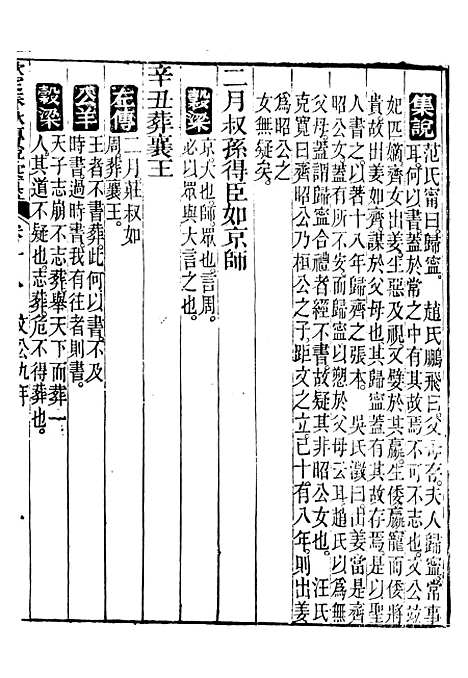 集說 范氏甯曰歸寧。 趙氏鵬飛曰父母在。夫人歸寧。常事
耳何以書蓋於常之中有其故焉不可不志也。文公並
妃匹嫡齊女出姜生惡及視文嬖於其嬴。生倭嬴寵而倭將
貴故出姜如齊謀於父母也其歸寧蓋有其故存焉是以聖
人書之以著十八年歸齊之張本。 吳氏澂曰出姜當是齊
昭公女蓋有所不安而愬於父母云耳趙氏以爲
父母在歸寧合禮者經不書故疑其非昭公女也。 汪氏
克寬曰齊昭公乃桓公之子距文之立已十有八年則出姜
爲昭公之
女無疑矣
二月叔孫得臣如京師
穀梁 京大也師眾也言周。
必以眾與大言之也。
辛丑葬襄王
左傳 二月莊叔如
周葬襄王。
公羊 王者不書葬此何以書不及
時書過時書我有往者則書。
穀梁 天子志崩不志葬舉天下而葬一
人其道不疑也志葬危不得葬也。
文公九年